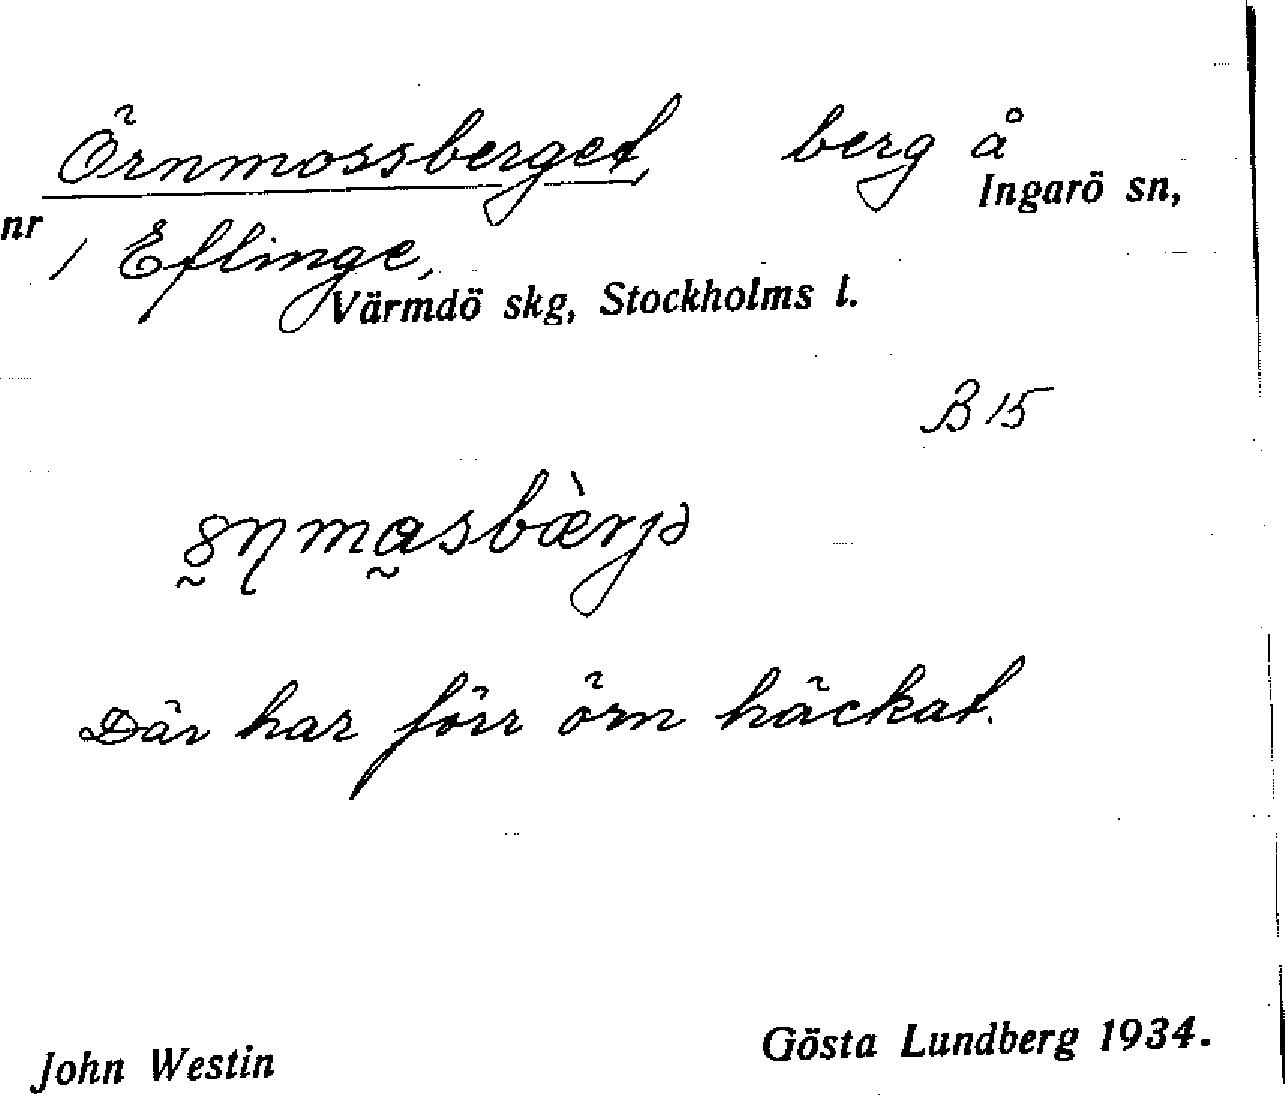 Örnmossberget, berg å
Ingarö sn,
nr 1 Eflinge,
Värmdö skg, Stockholms l.
B 15
Där har förr örn häckat.
John Westin Gösta Lundberg 1934.